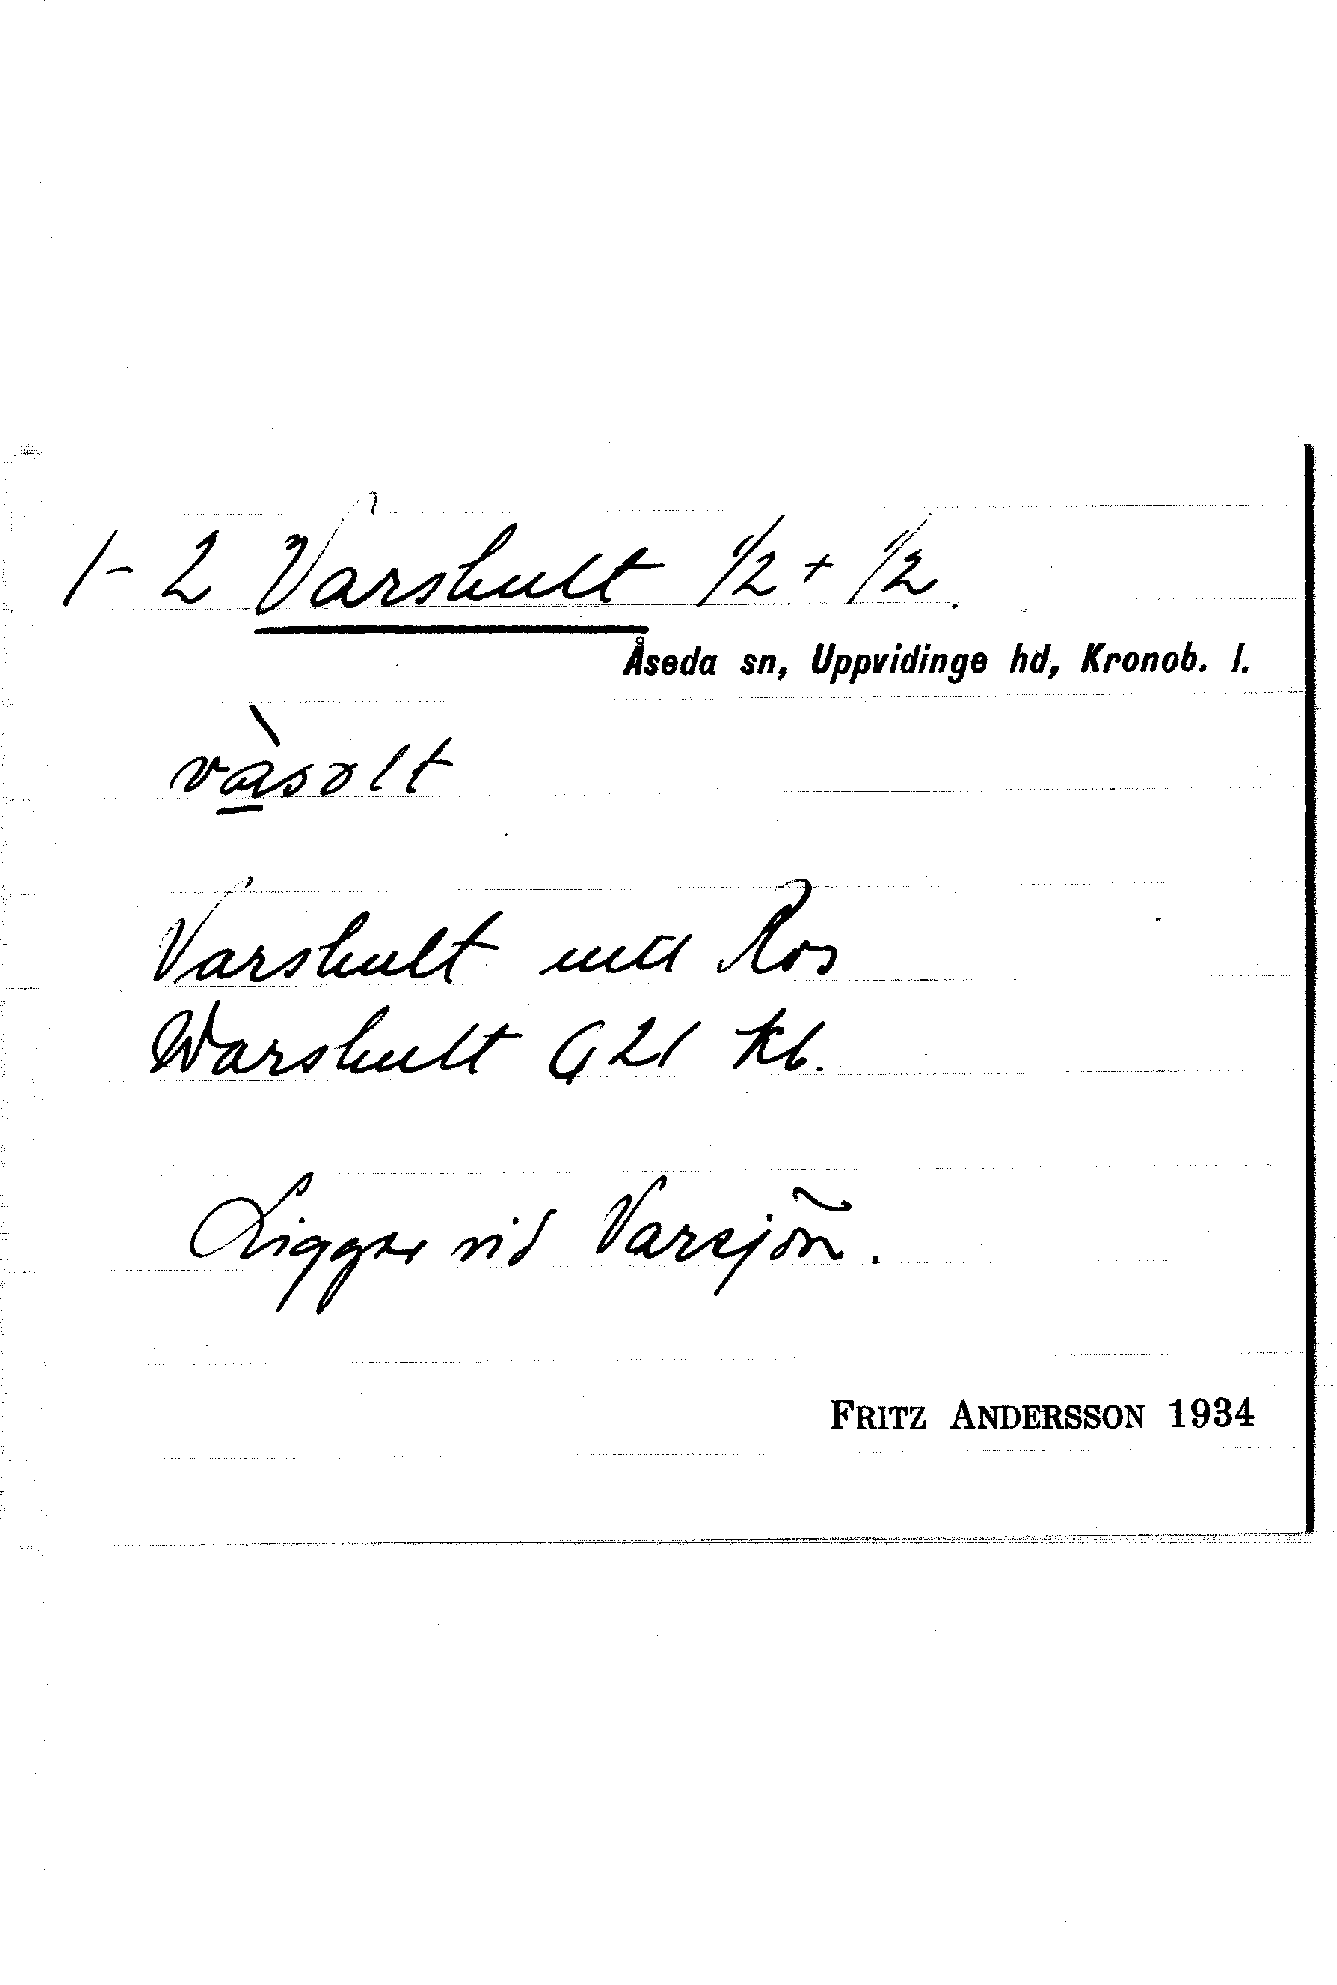 1-2 Varshult 1/2 + 1/2.
Åseda sn, Uppvidinge hd, Kronob. l.
vàsolt
Varshult mtl Ros
Warshult G 21 Kb.
Ligger vid Varsjön.
FRITZ ANDERSSON 1934